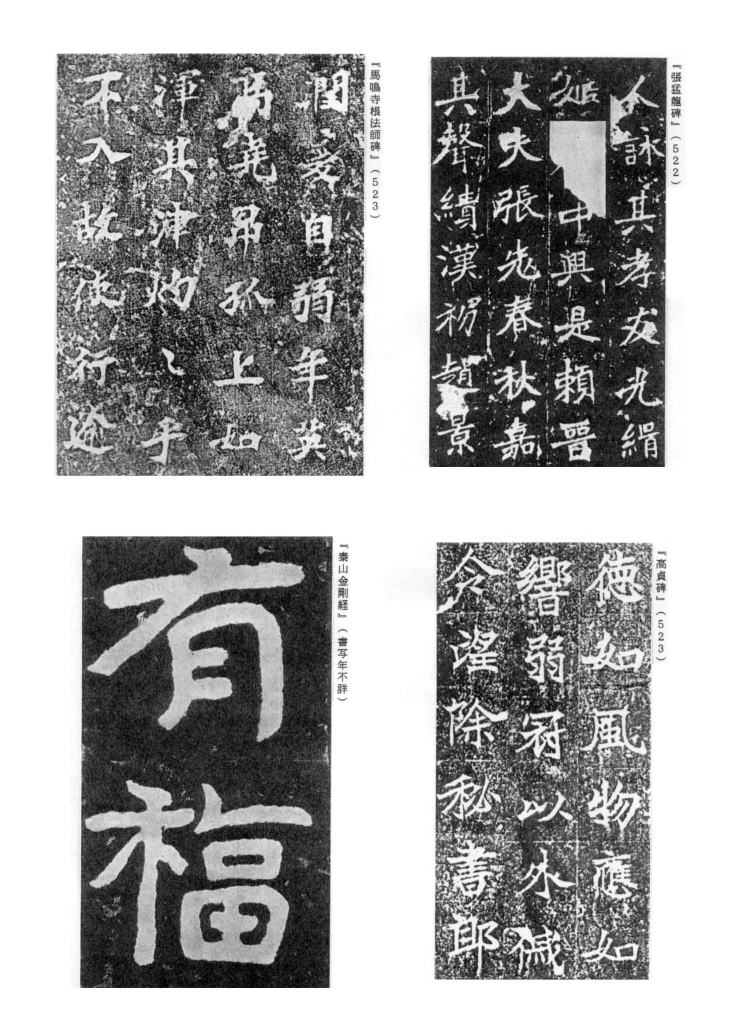 『張猛龍碑』（522）
人詠其孝友光緝
姬中興是賴晉
大夫張老春秋嘉
其聲績漢初趙景
『馬鳴寺根法師碑』（523）
爰自弱年英
昂孤上如
渾其津灼〻乎
不入故使行逾
『高貞碑』（523）
徳如風物應如
響弱冠以外戚
令望除秘書郎
『泰山金剛経』（書写年不詳）
有
福